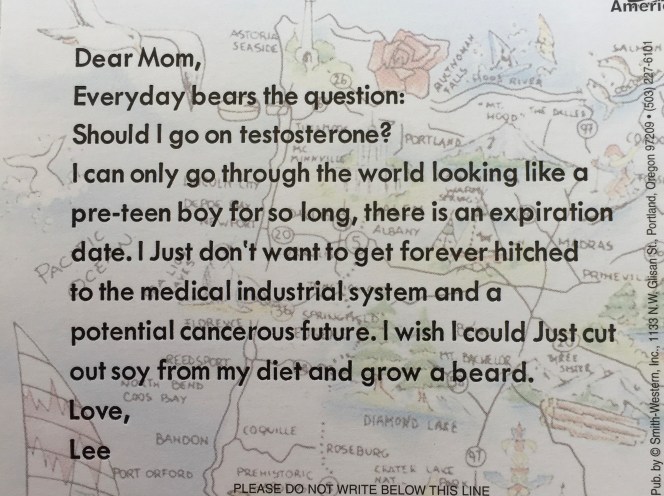 Ameri
Dear Mom,
Everyday bears the question:
Should I go on testosterone?
I can only go through the world looking like a
pre-teen boy for so long, there is an expiration
date. I Just don't want to get forever hitched
to the medical industrial system and a
potential cancerous future. I wish I could Just cut
out soy from my diet and grow a beard.
Love,
Lee
PLEASE DO NOT WRITE BELOW THIS LINE
Pub. by © Smith-Western, Inc., 1133 N.W. Glisan St., Portland, Oregon 97209 • (503) 227-6101
ASTORIA
SEASIDE
26
MULTNOMAH
FALLS
HOOD RIVER
SALMON
MT.
HOOD
THE DALLES
97
PORTLAND
MC
MINNVILLE
LINCOLN CITY
DEPOE BAY
NEWPORT
WARM
SPRINGS
20
5
ALBANY
MADRAS
PACIFIC
OCEAN
PRINEVILLE
FLORENCE
36
SPRINGFIELD
REEDSPORT
NORTH BEND
COOS BAY
MT. BACHELOR
THREE
SISTER
DIAMOND LAKE
BANDON
COQUILLE
ROSEBURG
97
PORT ORFORD
PREHISTORIC
CRATER LAKE
NAT. PARK